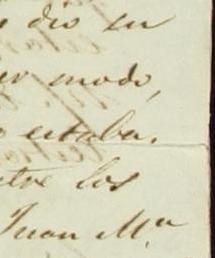 dio su
modo,
estaba.
entre los
Juan Mª